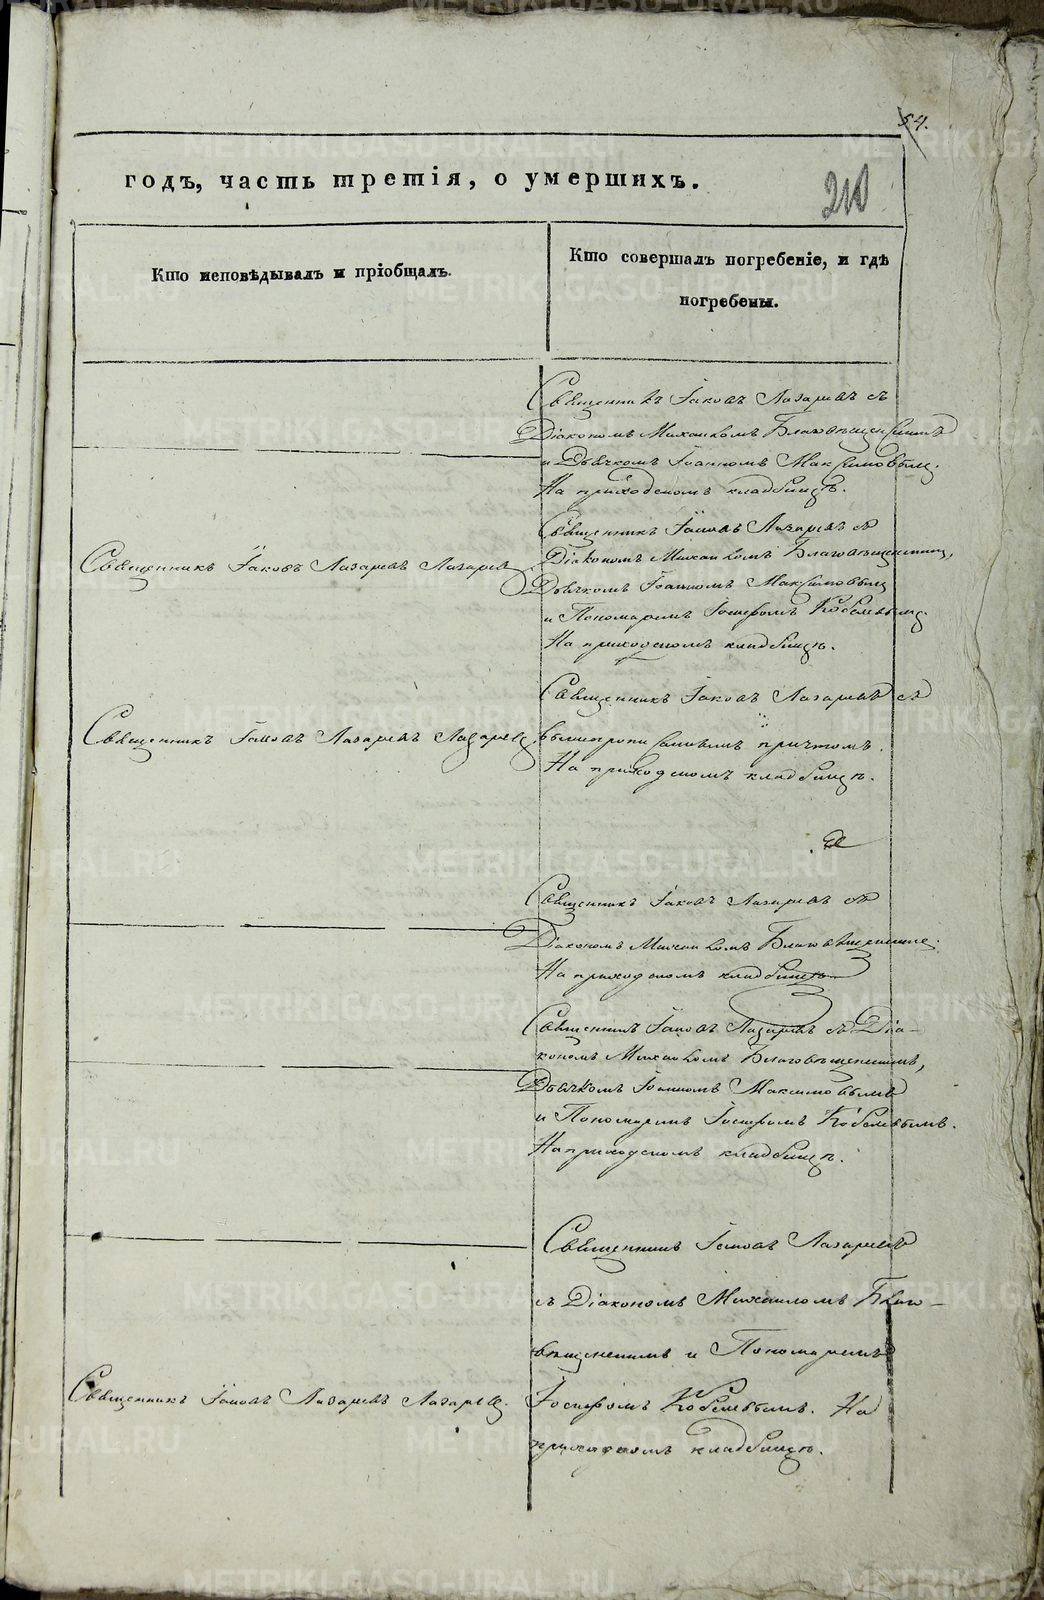 54.
годъ, часть третія, о умершихъ.
210
Кто исповѣдывалъ и пріобщалъ.
Кто совершалъ погребеніе, и гдѣ
погребены.
Священникъ Іаковъ Лазаревъ съ
Діакономъ Михаиломъ Благовѣщенскимъ
и Дьячкомъ Іоанномъ Максимовымъ.
На приходскомъ кладбищѣ.
Священникъ Іаковъ Лазаревъ Лазаревъ
Священникъ Іаковъ Лазаревъ съ
Діакономъ Михаиломъ Благовѣщенскимъ,
Дьячкомъ Іоанномъ Максимовымъ
и Пономаремъ Іосифомъ Кобелевымъ.
На приходскомъ кладбищѣ.
Священникъ Іаковъ Лазаревъ Лазаревъ
Священникъ Іаковъ Лазаревъ съ
вышепрописаннымъ причтомъ.
На приходскомъ кладбищѣ.
Священникъ Іаковъ Лазаревъ съ
Діакономъ Михаиломъ Благовѣщенскимъ.
На приходскомъ кладбищѣ
Священникъ Іаковъ Лазаревъ съ Діа-
кономъ Михаиломъ Благовѣщенскимъ,
Дьячкомъ Іоанномъ Максимовымъ
и Пономаремъ Іосифомъ Кобелевымъ.
На приходскомъ кладбищѣ.
Священникъ Іаковъ Лазаревъ Лазаревъ.
Священникъ Іаковъ Лазаревъ
съ Діакономъ Михаиломъ Благо-
вѣщенскимъ и Пономаремъ
Іосифомъ Кобелевымъ. На
приходскомъ кладбищѣ.
METRIKI.GASO-URAL.RU